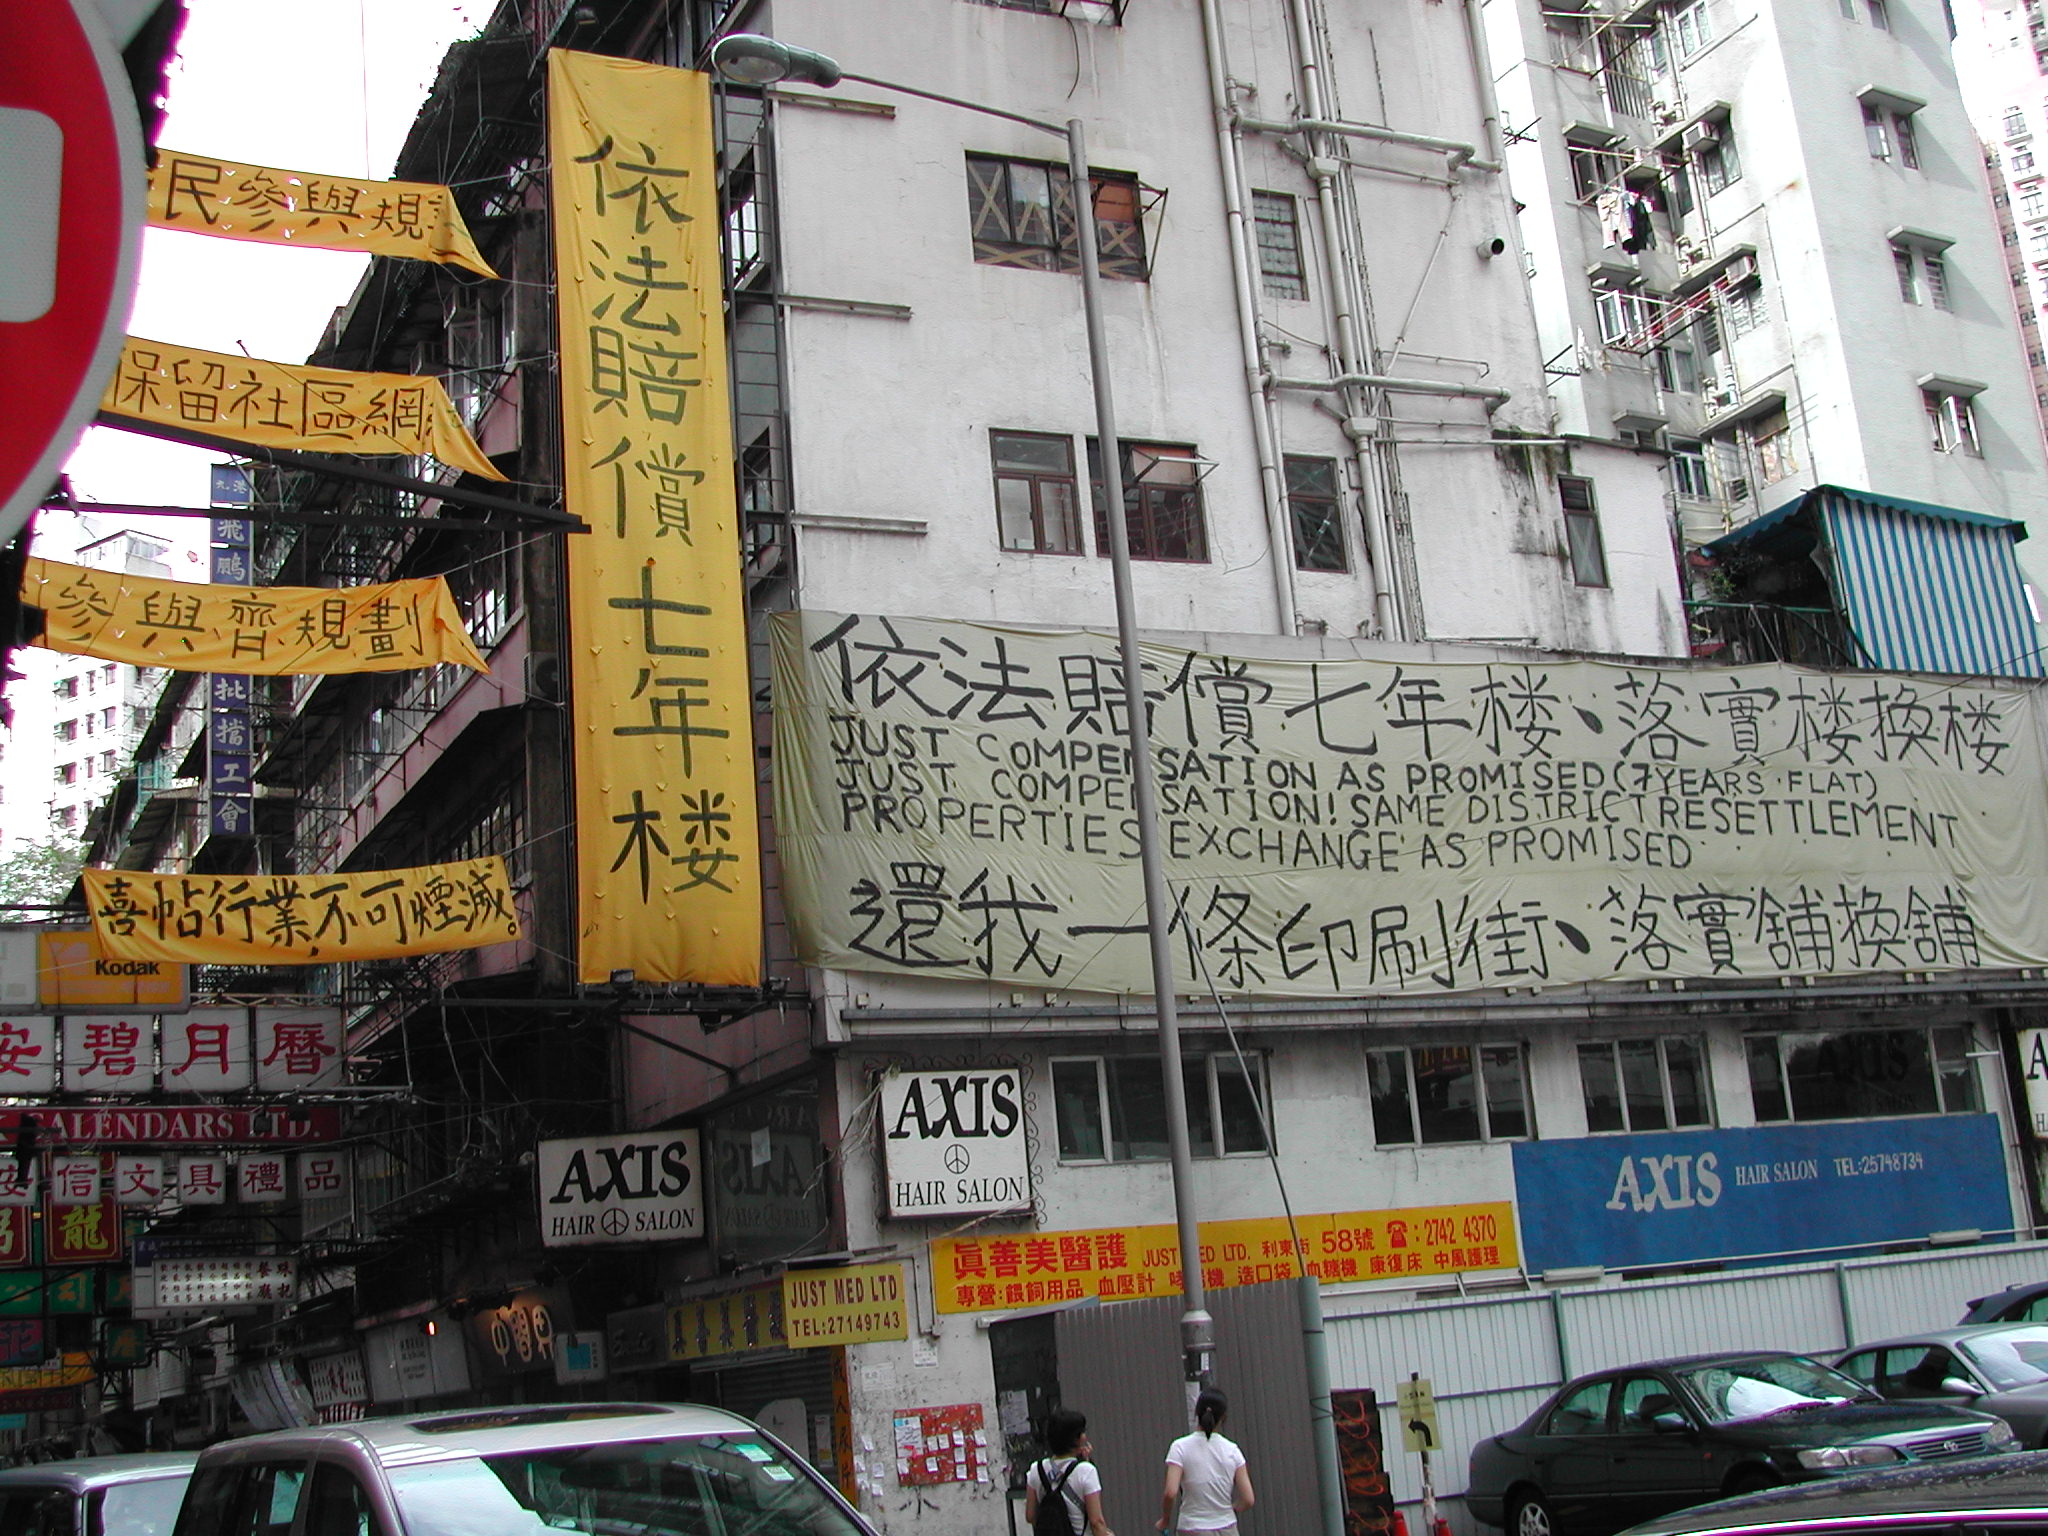 民參與規
保留社區網
參與齊規劃
喜帖行業不可煙滅。
依法賠償七年楼
依法賠償七年楼、落實楼換楼
JUST COMPENSATION AS PROMISED (7 YEARS FLAT)
JUST COMPENSATION! SAME DISTRICT RESETTLEMENT
PROPERTIES EXCHANGE AS PROMISED
還我一條印刷街、落實舖換舖
飛鵬
批擋工會
Kodak
安碧月曆
CALENDARS LTD.
安信文具禮品
龍
AXIS
HAIR SALON
AXIS
HAIR SALON
AXIS HAIR SALON TEL:25748734
眞善美醫護 JUST MED LTD. 利東街 58號 ☎:2742 4370
專營:餵飼用品 血壓計 機 造口袋 血糖機 康復床 中風護理
JUST MED LTD
TEL:27149743